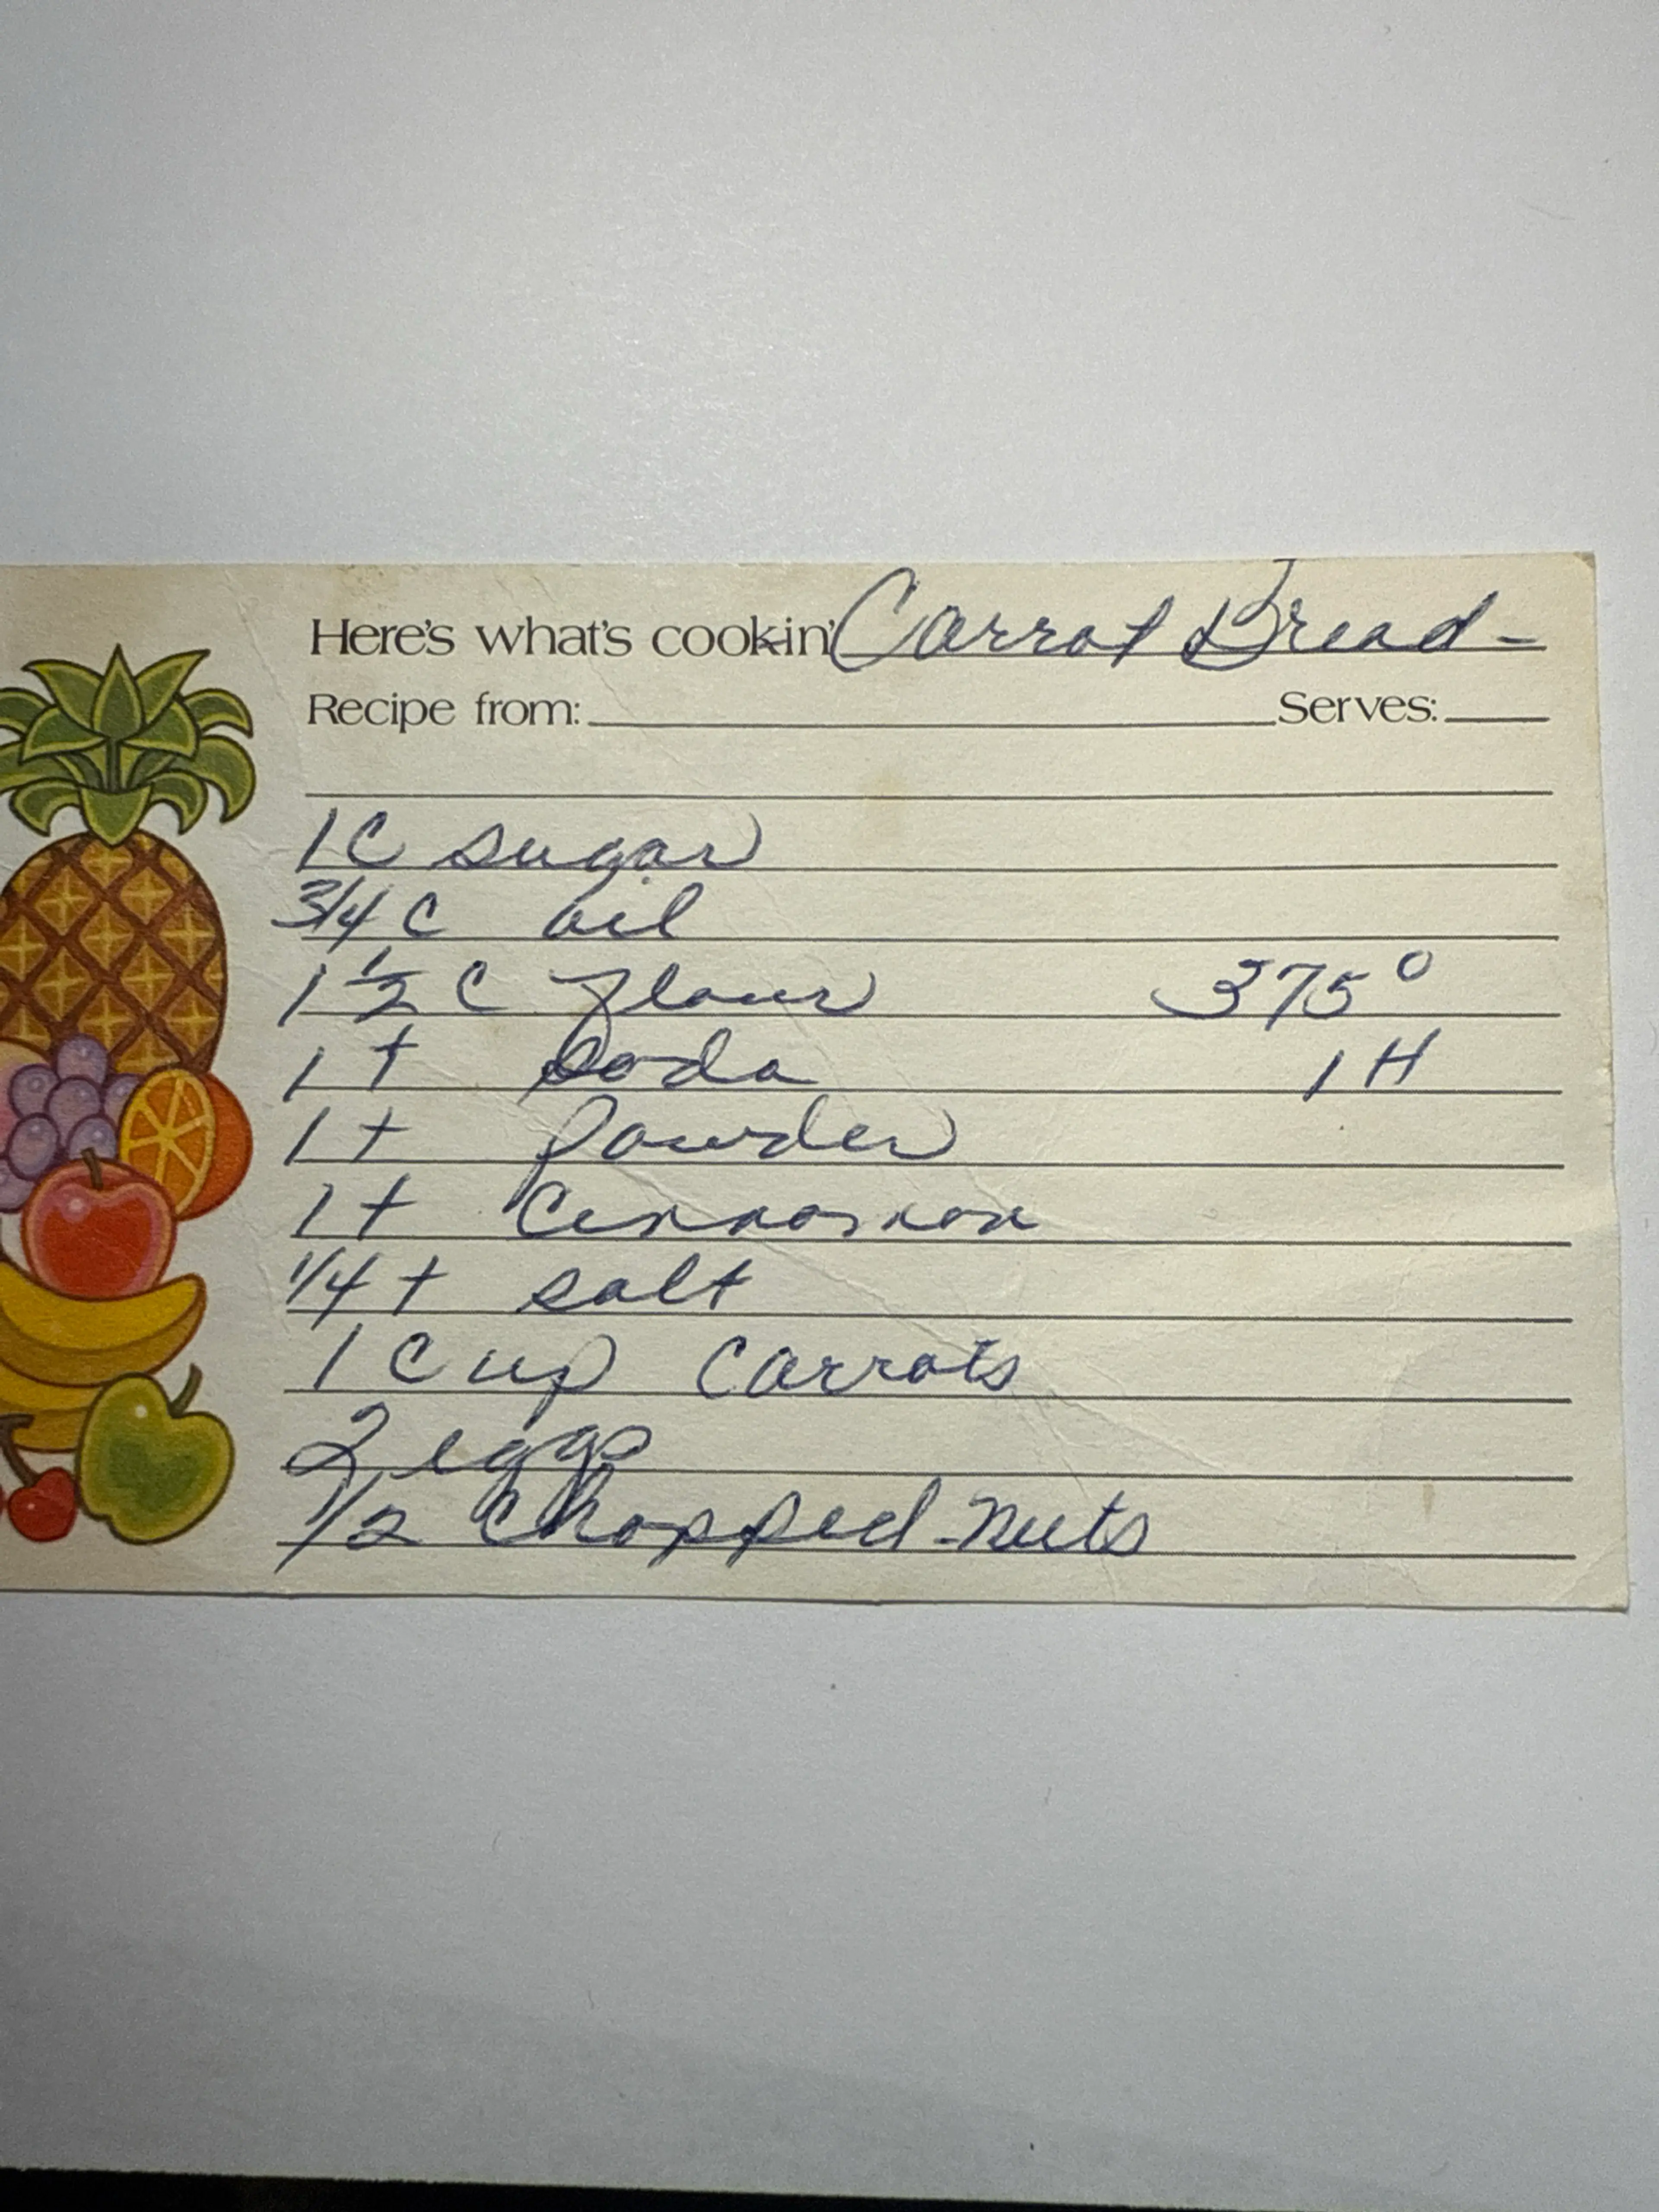 Here's what's cookin' Carrot Bread -
Recipe from: Serves:
1 C sugar
3/4 C oil
1 1/2 C flour 375°
1 t soda 1 H
1 t powder
1 t Cinnamon
1/4 t salt
1 Cup Carrots
2 eggs
1/2 Chopped nuts